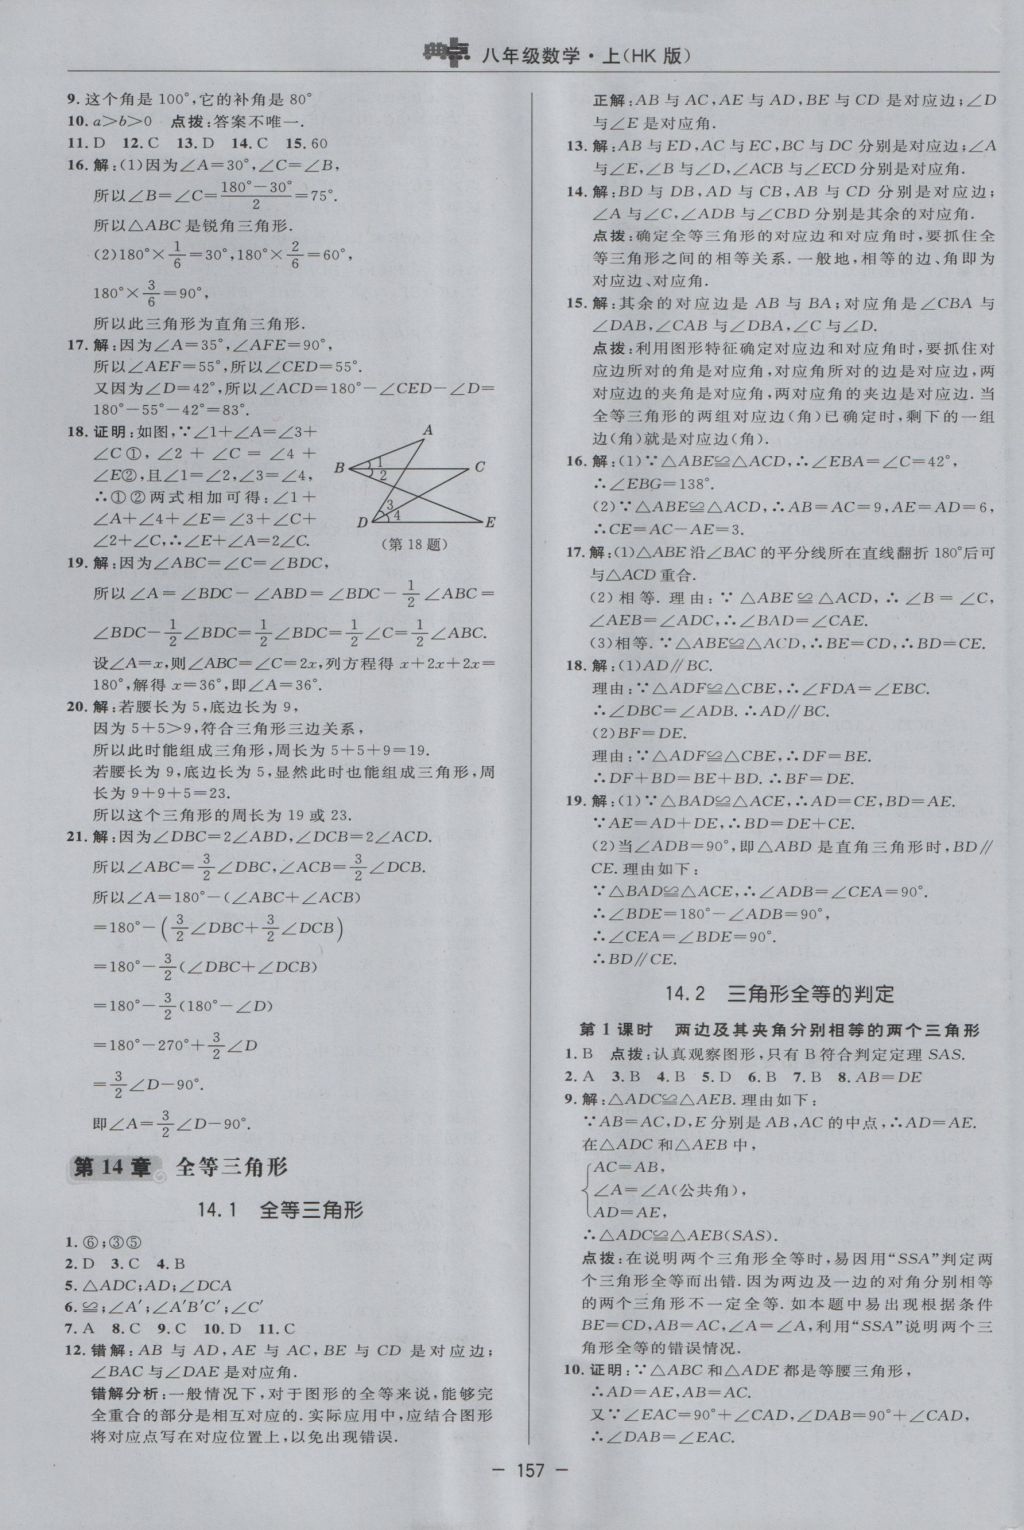 典点 八年级数学·上(HK 版)
9. 这个角是 100°,它的补角是 80°
10. a>b>0 点拨:答案不唯一.
11. D 12. C 13. D 14. C 15. 60
16. 解:(1)因为∠A=30°,∠C=∠B,
所以∠B=∠C=(180°-30°)/2=75°.
所以△ABC 是锐角三角形.
(2)180°×1/6=30°,180°×2/6=60°,
180°×3/6=90°,
所以此三角形为直角三角形.
17. 解:因为∠A=35°,∠AFE=90°,
所以∠AEF=55°,所以∠CED=55°.
又因为∠D=42°,所以∠ACD=180°-∠CED-∠D=
180°-55°-42°=83°.
18. 证明:如图,∵∠1+∠A=∠3+
∠C①,∠2+∠C=∠4+
∠E②,且∠1=∠2,∠3=∠4,
∴①②两式相加可得:∠1+
∠A+∠4+∠E=∠3+∠C+
∠2+∠C,∴∠E+∠A=2∠C.
A
B 1 2 C
D 3 4 E
(第 18 题)
19. 解:因为∠ABC=∠C=∠BDC,
所以∠A=∠BDC-∠ABD=∠BDC-1/2∠ABC=
∠BDC-1/2∠BDC=1/2∠BDC=1/2∠C=1/2∠ABC.
设∠A=x,则∠ABC=∠C=2x,列方程得 x+2x+2x=
180°,解得 x=36°,即∠A=36°.
20. 解:若腰长为 5,底边长为 9,
因为 5+5>9,符合三角形三边关系,
所以此时能组成三角形,周长为 5+5+9=19.
若腰长为 9,底边长为 5,显然此时也能组成三角形,周
长为 9+9+5=23.
所以这个三角形的周长为 19 或 23.
21. 解:因为∠DBC=2∠ABD,∠DCB=2∠ACD.
所以∠ABC=3/2∠DBC,∠ACB=3/2∠DCB.
所以∠A=180°-(∠ABC+∠ACB)
=180°-(3/2∠DBC+3/2∠DCB)
=180°-3/2(∠DBC+∠DCB)
=180°-3/2(180°-∠D)
=180°-270°+3/2∠D
=3/2∠D-90°.
即∠A=3/2∠D-90°.
第 14 章 全等三角形
14.1 全等三角形
1. ⑥;③⑤
2. D 3. C 4. B
5. △ADC;AD;∠DCA
6. ≌;∠A′;∠A′B′C′;∠C′
7. A 8. C 9. C 10. D 11. C
12. 错解:AB 与 AD,AE 与 AC,BE 与 CD 是对应边;
∠BAC与∠DAE 是对应角.
错解分析:一般情况下,对于图形的全等来说,能够完
全重合的部分是相互对应的.实际应用中,应结合图形
将对应点写在对应位置上,以免出现错误.
正解:AB 与 AC,AE 与 AD,BE 与 CD 是对应边;∠D
与∠E 是对应角.
13. 解:AB 与 ED,AC 与 EC,BC 与 DC 分别是对应边;∠A
与∠E,∠B 与∠D,∠ACB 与∠ECD 分别是对应角.
14. 解:BD 与 DB,AD 与 CB,AB 与 CD 分别是对应边;
∠A 与∠C,∠ADB 与∠CBD 分别是其余的对应角.
点拨:确定全等三角形的对应边和对应角时,要抓住全
等三角形之间的相等关系.一般地,相等的边、角即为
对应边、对应角.
15. 解:其余的对应边是 AB 与 BA;对应角是∠CBA 与
∠DAB,∠CAB 与∠DBA,∠C 与∠D.
点拨:利用图形特征确定对应边和对应角时,要抓住对
应边所对的角是对应角,对应角所对的边是对应边,两
对应边的夹角是对应角,两对应角的夹边是对应边.当
全等三角形的两组对应边(角)已确定时,剩下的一组
边(角)就是对应边(角).
16. 解:(1)∵△ABE≌△ACD,∴∠EBA=∠C=42°,
∴∠EBG=138°.
(2)∵△ABE≌△ACD,∴AB=AC=9,AE=AD=6,
∴CE=AC-AE=3.
17. 解:(1)△ABE 沿∠BAC 的平分线所在直线翻折 180°后可
与△ACD 重合.
(2)相等.理由:∵△ABE≌△ACD,∴∠B=∠C,
∠AEB=∠ADC,∴∠BAD=∠CAE.
(3)相等.∵△ABE≌△ACD,∴BE=CD,∴BD=CE.
18. 解:(1)AD∥BC.
理由:∵△ADF≌△CBE,∴∠FDA=∠EBC.
∴∠DBC=∠ADB.∴AD∥BC.
(2)BF=DE.
理由:∵△ADF≌△CBE,∴DF=BE.
∴DF+BD=BE+BD.∴BF=DE.
19. 解:(1)∵△BAD≌△ACE,∴AD=CE,BD=AE.
∵AE=AD+DE,∴BD=DE+CE.
(2)当∠ADB=90°,即△ABD 是直角三角形时,BD∥
CE.理由如下:
∵△BAD≌△ACE,∴∠ADB=∠CEA=90°.
∴∠BDE=180°-∠ADB=90°,
∴∠CEA=∠BDE=90°.
∴BD∥CE.
14.2 三角形全等的判定
第 1 课时 两边及其夹角分别相等的两个三角形
1. B 点拨:认真观察图形,只有 B 符合判定定理 SAS.
2. A 3. B 4. B 5. D 6. B 7. B 8. AB=DE
9. 解:△ADC≌△AEB.理由如下:
∵AB=AC,D,E 分别是 AB,AC 的中点,∴AD=AE.
在△ADC 和△AEB 中,
AC=AB,
∠A=∠A(公共角),
AD=AE,
∴△ADC≌△AEB(SAS).
点拨:在说明两个三角形全等时,易因用“SSA”判定两
个三角形全等而出错.因为两边及一边的对角分别相等
的两个三角形不一定全等.如本题中易出现根据条件
BE=CD,AB=AC,∠A=∠A,利用“SSA”说明两个三
角形全等的错误情况.
10. 证明:∵△ABC 和△ADE 都是等腰三角形,
∴AD=AE,AB=AC.
又∵∠EAC=90°+∠CAD,∠DAB=90°+∠CAD,
∴∠DAB=∠EAC.
- 157 -